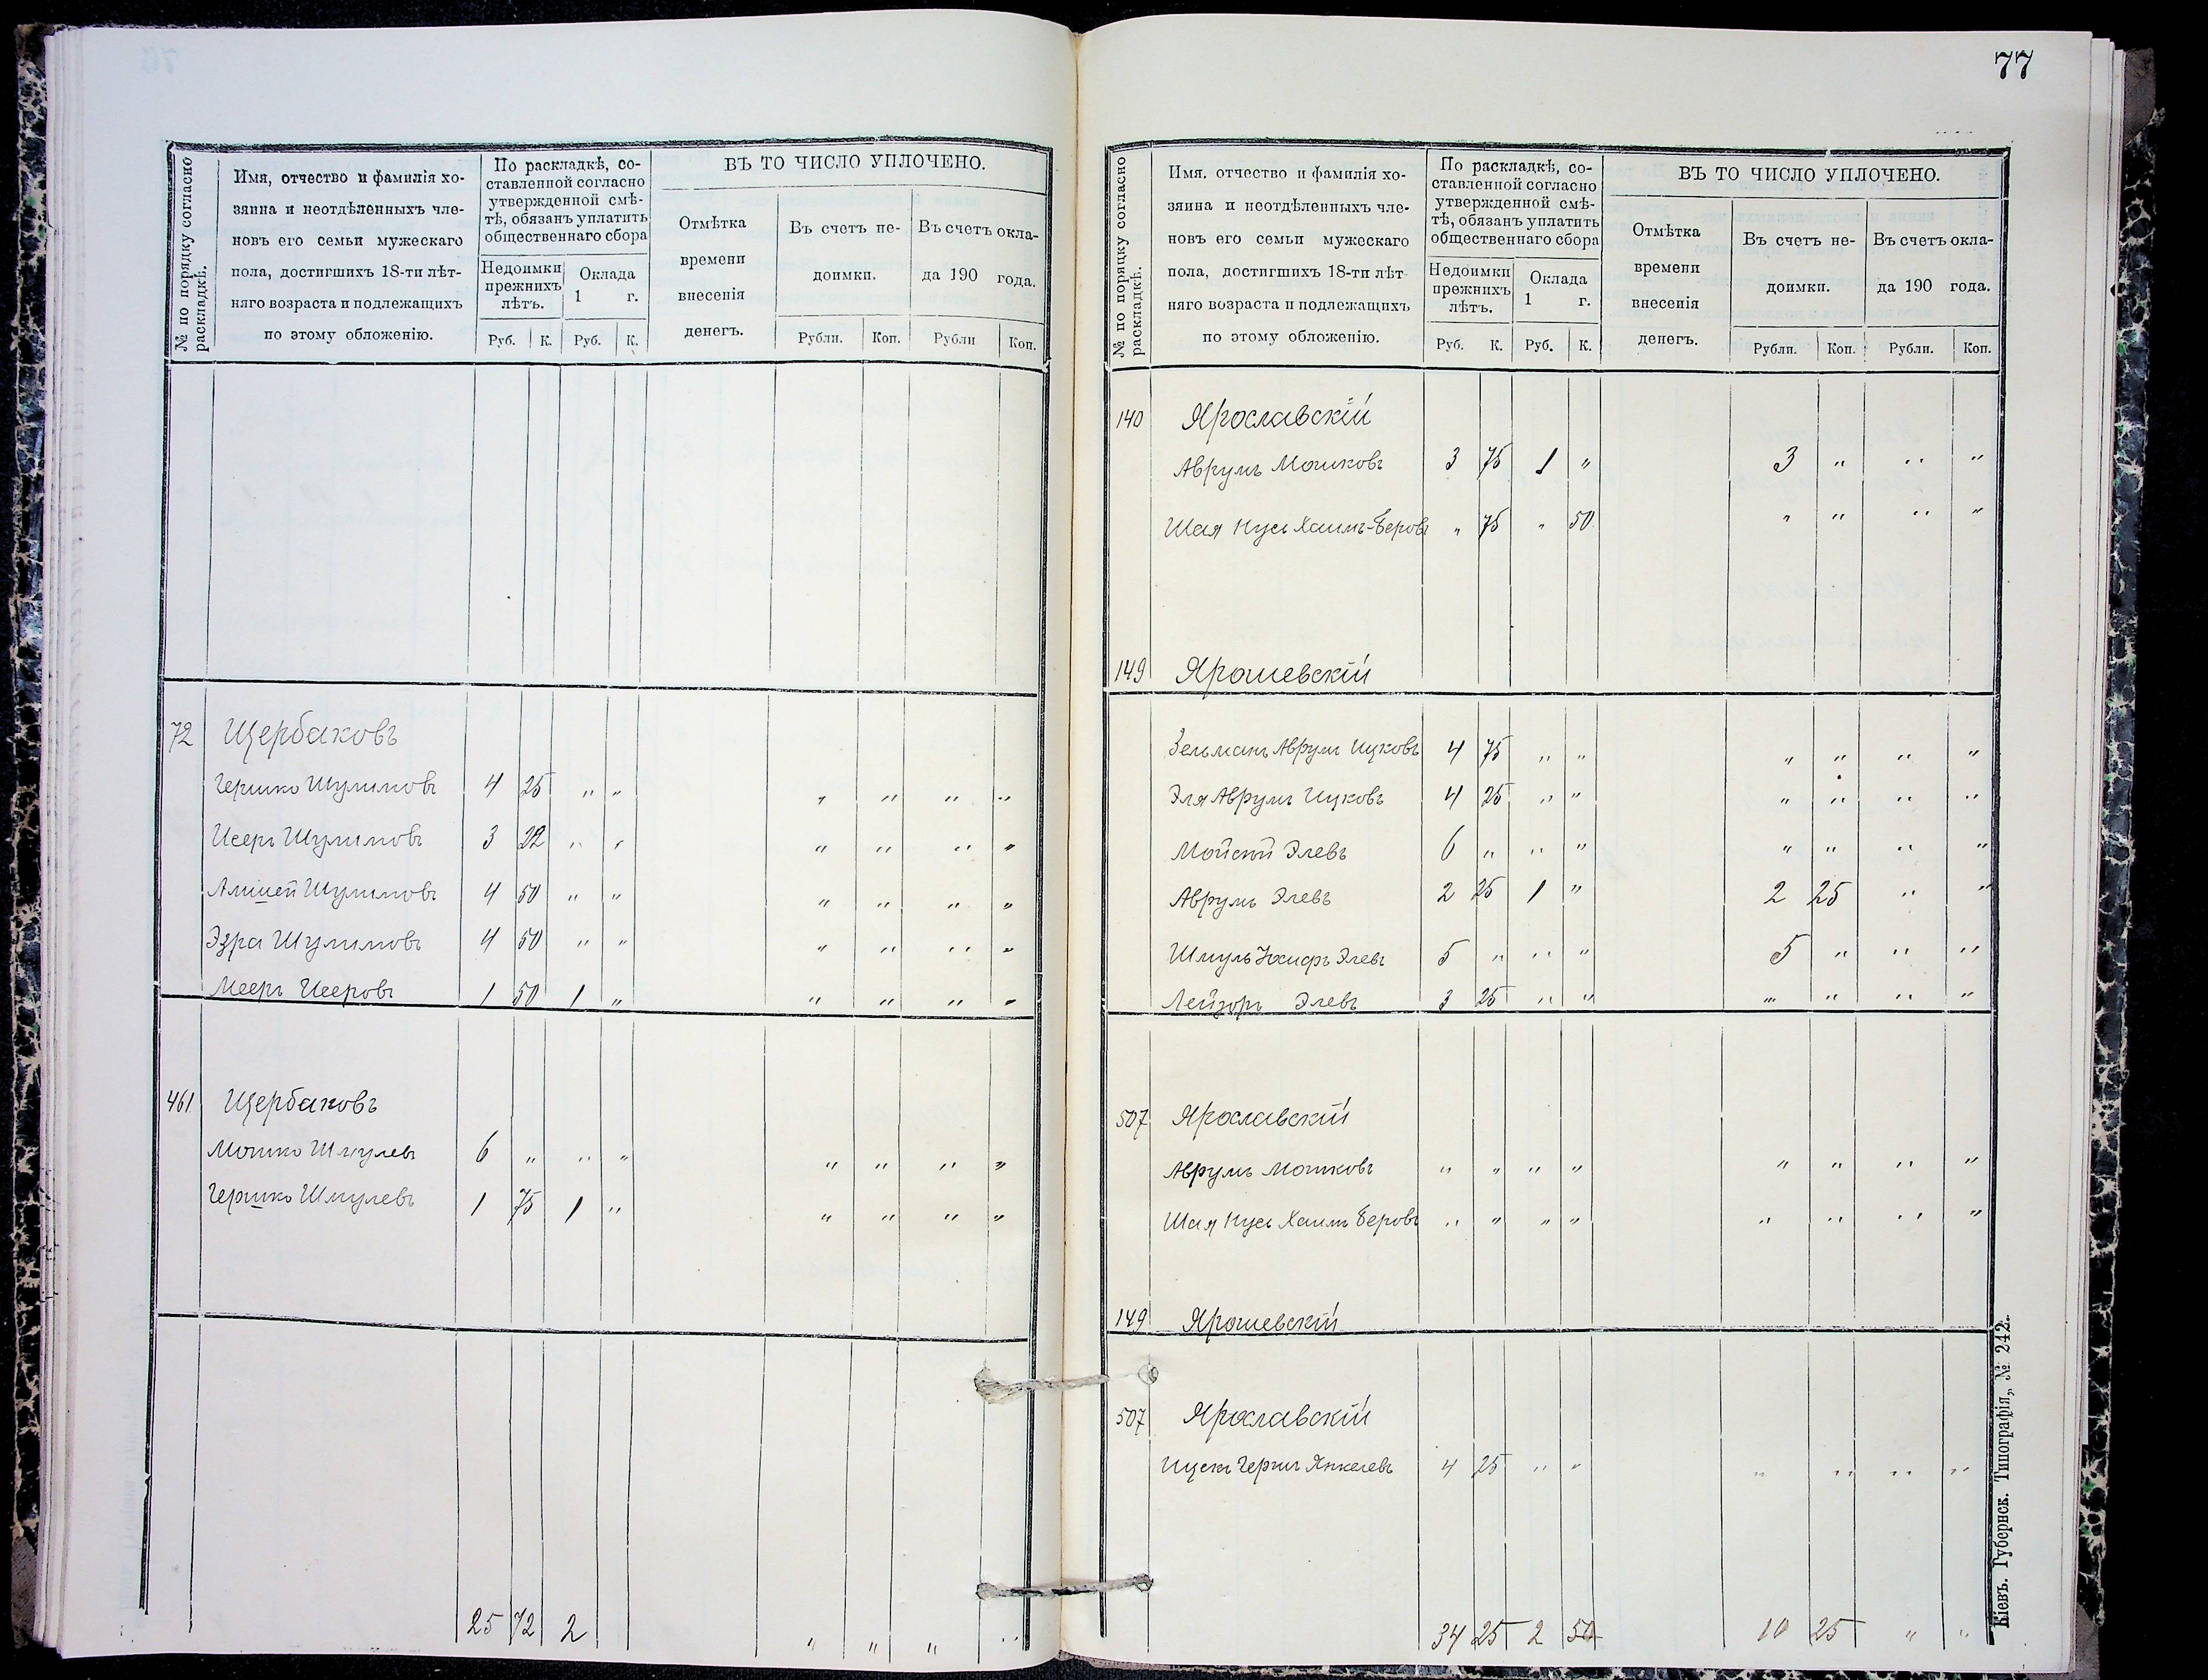 № по порядку согласно раскладкѣ.
Имя, отчество и фамилія хо-
зяина и неотдѣленныхъ чле-
новъ его семьи мужескаго
пола, достигшихъ 18-ти лѣт-
няго возраста и подлежащихъ
по этому обложенію.
По раскладкѣ, со-
ставленной согласно
утвержденной смѣ-
тѣ, обязанъ уплатить
общественнаго сбора
Недоимки
прежнихъ
лѣтъ.
Оклада
1 г.
Руб. К. Руб. К.
ВЪ ТО ЧИСЛО УПЛОЧЕНО.
Отмѣтка
времени
внесенія
денегъ.
Въ счетъ не-
доимки.
Въ счетъ окла-
да 190 года.
Рубли. Коп. Рубли Коп.
72 Щербаковъ
Гершко Шулимовъ 4 25 " " " " " "
Исеръ Шулимовъ 3 22 " " " " " "
Амшей Шулимовъ 4 50 " " " " " "
Эзра Шулимовъ 4 50 " " " " " "
Мееръ Исеровъ 1 50 1 " " " " "
461 Щербаковъ
Мошко Шмулевъ 6 " " " " " " "
Гершко Шмулевъ 1 75 1 " " " " "
25 72 2 " " " "
77
№ по порядку согласно раскладкѣ.
Имя, отчество и фамилія хо-
зяина и неотдѣленныхъ чле-
новъ его семьи мужескаго
пола, достигшихъ 18-ти лѣт-
няго возраста и подлежащихъ
по этому обложенію.
По раскладкѣ, со-
ставленной согласно
утвержденной смѣ-
тѣ, обязанъ уплатить
общественнаго сбора
Недоимки
прежнихъ
лѣтъ.
Оклада
1 г.
Руб. К. Руб. К.
ВЪ ТО ЧИСЛО УПЛОЧЕНО.
Отмѣтка
времени
внесенія
денегъ.
Въ счетъ не-
доимки.
Въ счетъ окла-
да 190 года.
Рубли. Коп. Рубли. Коп.
140 Ярославскій
Аврумъ Мошковъ 3 75 1 " 3 " " "
Шая Нусь Хаимъ-Беровъ " 75 " 50 " " " "
149 Ярошевскій
Зельманъ Аврум Ицковъ 4 75 " " " " " "
Эля Аврумъ Ицковъ 4 25 " " " " " "
Мойсей Элевъ 6 " " " " " " "
Аврумъ Элевъ 2 25 1 " 2 25 " "
Шмуль Іосифъ Элевъ 5 " " " 5 " " "
Лейзоръ Элевъ 3 25 " " " " " "
507 Ярославскій
Аврумъ Мошковъ " " " " " " " "
Шая Нусь Хаимъ Беровъ " " " " " " " "
149 Ярошевскій
507 Ярославскій
Ицекъ Герш Янкелевъ 4 25 " " " " " "
34 25 2 50 10 25 " "
Кіевъ. Губернск. Типографія, № 242.